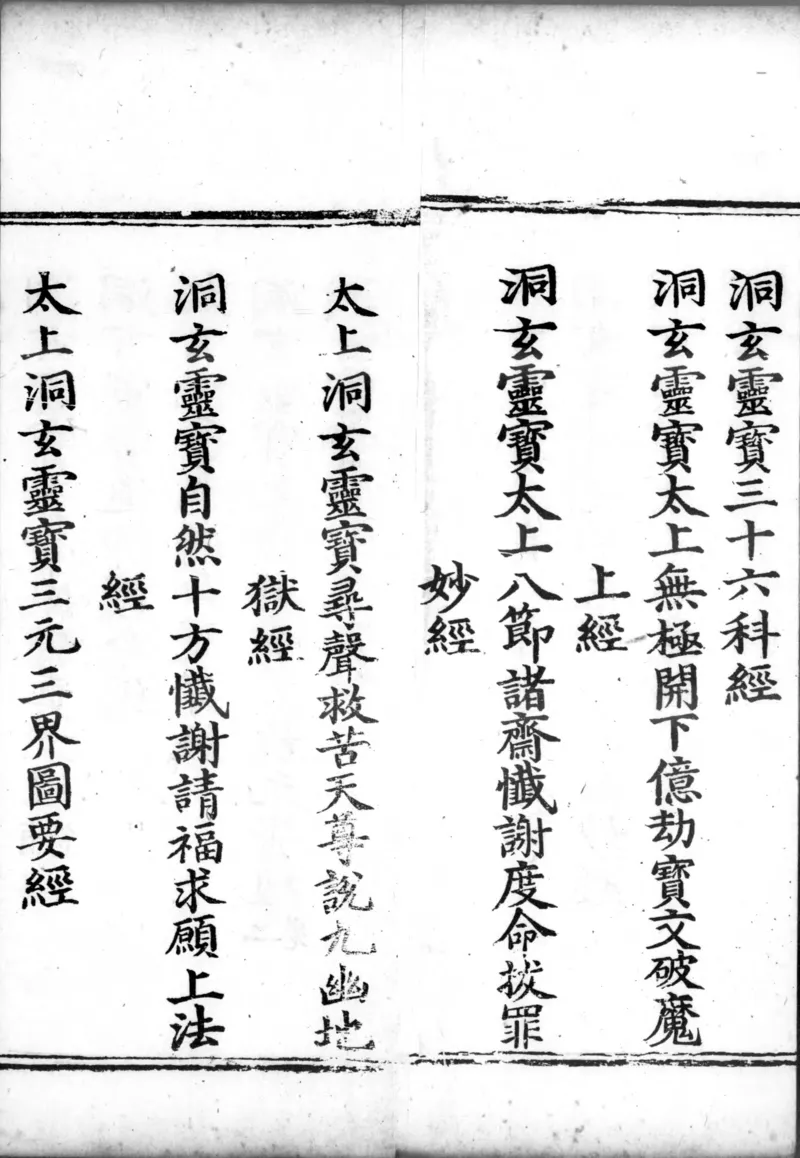 洞玄靈寶三十六科經
洞玄靈寶太上無極開下億劫寶文破魔
上經
洞玄靈寶太上八節諸齋懺謝度命拔罪
妙經
太上洞玄靈寶尋聲救苦天尊說九幽地
獄經
洞玄靈寶自然十方懺謝請福求願上法
經
太上洞玄靈寶三元三界圖要經